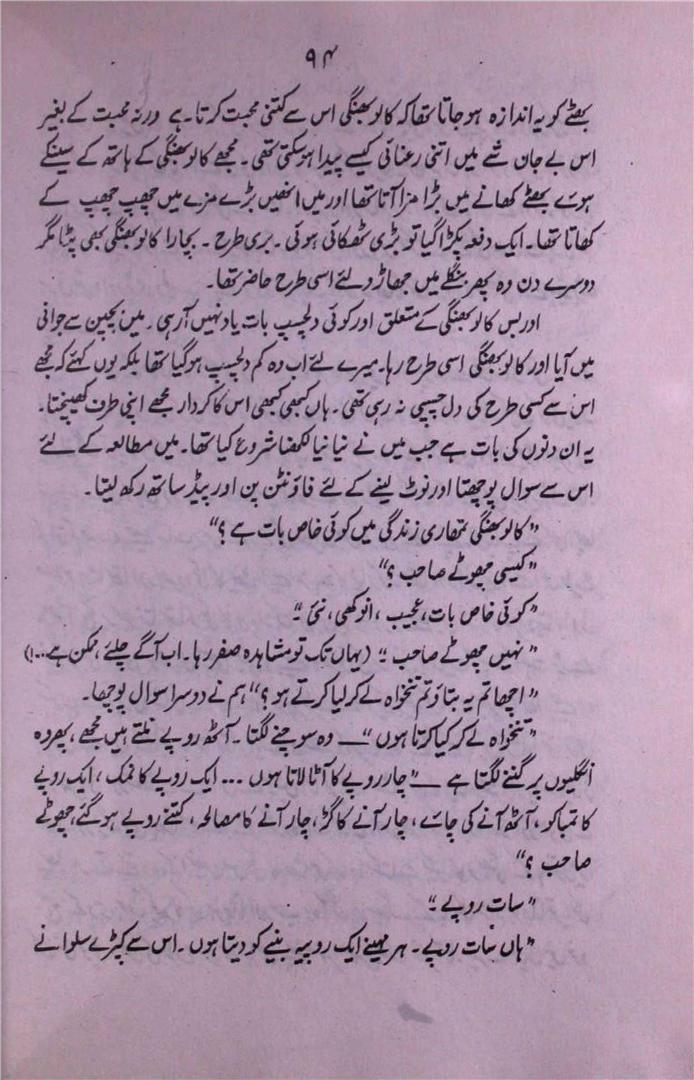 ۹۴
بھٹے کو یہ اندازہ ہو جاتا تھا کہ کالو بھنگی اس سے کتنی محبت کرتا ہے ورنہ محبت کے بغیر
اس بے جان شے میں اتنی رعنائی کیسے پیدا ہو سکتی تھی۔ مجھے کالو بھنگی کے ہاتھ کے سینکے
ہوئے بھٹے کھانے میں بڑا مزا آتا تھا اور میں انھیں بڑے مزے میں چھپ چھپ کے
کھاتا تھا۔ ایک دفعہ پکڑا گیا تو بڑی ٹھکائی ہوئی۔ بری طرح۔ بچارا کالو بھنگی بھی پٹا مگر
دوسرے دن وہ پھر بنگلے میں جھاڑو لئے اسی طرح حاضر تھا۔
اور بس کالو بھنگی کے متعلق اور کوئی دلچسپ بات یاد نہیں آ رہی۔ میں بچپن سے جوانی
میں آیا اور کالو بھنگی اسی طرح رہا۔ میرے لئے اب وہ کم دلچسپ ہو گیا تھا بلکہ یوں کہئے کہ مجھے
اس سے کسی طرح کی دل چسپی نہ رہی تھی۔ ہاں کبھی کبھی اس کا کردار مجھے اپنی طرف کھینچتا۔
یہ ان دنوں کی بات ہے جب میں نے نیا نیا لکھنا شروع کیا تھا۔ میں مطالعہ کے لئے
اس سے سوال پوچھتا اور نوٹ لینے کے لئے فاؤنٹن پن اور پیڈ ساتھ رکھ لیتا۔
”کالو بھنگی تمھاری زندگی میں کوئی خاص بات ہے؟“
”کیسی چھوٹے صاحب؟“
”کوئی خاص بات، عجیب، انوکھی، نئی“۔
”نہیں چھوٹے صاحب“۔ (یہاں تک تو مشاہدہ صفر رہا۔ اب آگے چلئے، ممکن ہے...!)
”اچھا تم یہ بتاؤ تم تنخواہ لے کر کیا کرتے ہو؟“ ہم نے دوسرا سوال پوچھا۔
”تنخواہ لے کر کیا کرتا ہوں“ — وہ سوچنے لگتا۔ آٹھ روپے ملتے ہیں مجھے، پھر وہ
انگلیوں پر گننے لگتا ہے — ”چار روپے کا آٹا لاتا ہوں ... ایک روپے کا نمک، ایک روپے
کا تمباکو، آٹھ آنے کی چائے، چار آنے کا گڑ، چار آنے کا مصالحہ، کتنے روپے ہو گئے، چھوٹے
صاحب؟“
”سات روپے۔“
”ہاں سات روپے۔ ہر مہینے ایک روپیہ بنیے کو دیتا ہوں۔ اس سے کپڑے سلوانے